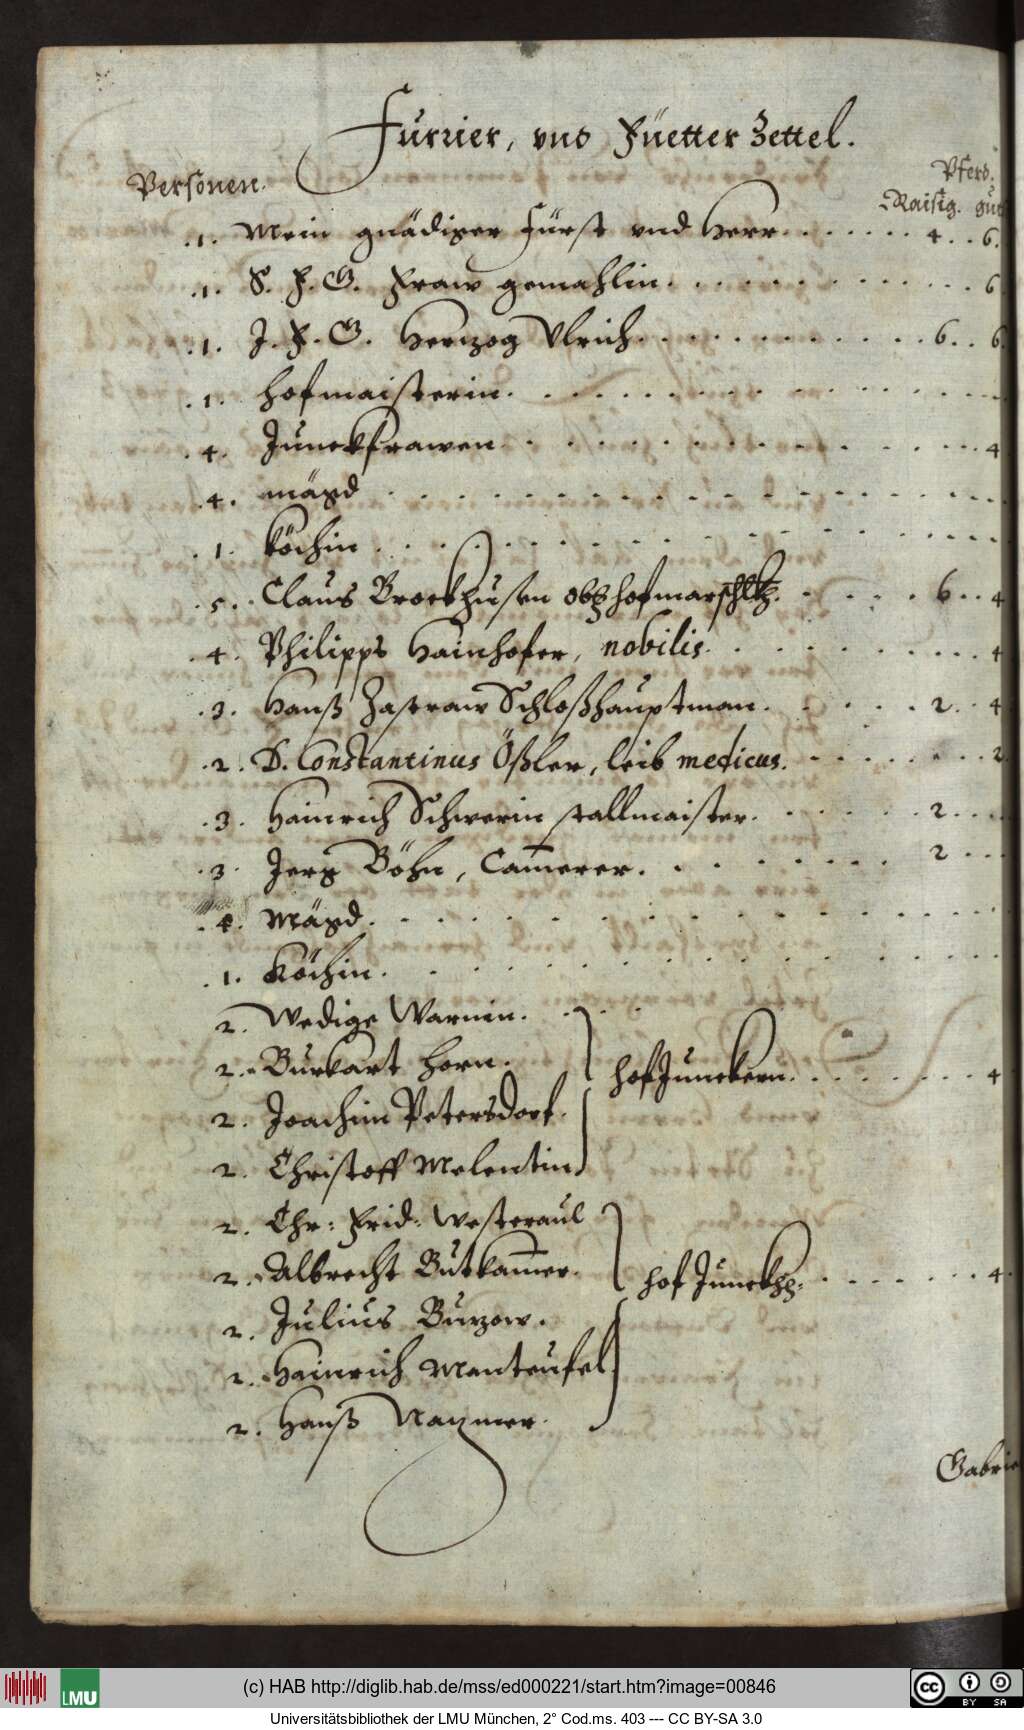 Furrier, vnd Füetter Zettel.
Personen.
Pferd.
Raisig. gut
.1. Mein gnädiger Fürst vnd Herr. . . . . . . 4. . 6.
.1. S. F. G. Fraw gemahlin. . . . . . . . . . 6
.1. J. F. G. Hertzog Vlrich. . . . . . . . . . 6. . 6
.1. hofmaisterin. . . . . . . . . . .
.4. Junckfrawen. . . . . . . . . . . 4
.4. mägd . . . . . . . . . . . .
.1. köchin . . . . . . . . . . . .
.5. Claus Brockhusen hofmarschlkh. . . . . 6. . 4
.4. Philipps Hainhofer, nobilis. . . . . . . . . 4
.3. Hanß Zastraw Schloßhauptman. . . . . . 2. . 4
.2. D. Constantinus Ößler, leib medicus. . . . . . . 2
.3. Hainrich Schwerin stallmaister. . . . . . 2. . .
.3. Jerg Böhn, Cam̅erer. . . . . . . . 2 . .
.4. Mägd. . . . . . . . . . . .
.1. Köchin. . . . . . . . . . . .
2. Wedige Warnin. . . .
2. Burkart horn.
hofJunckern. . . . . . . . 4
2. Joachim Petersdorf.
2. Christoff Melentin
2. Chr: Frid: Westeraul
2. Albrecht Butkam̅er.
hof Junckhh: . . . . . . . 4.
2. Julius Burzow.
2. Hainrich Manteufel.
2. Hanß Nazmer.
Gabrie
(c) HAB http://diglib.hab.de/mss/ed000221/start.htm?image=00846
LMU
BY SA
Universitätsbibliothek der LMU München, 2° Cod.ms. 403 --- CC BY-SA 3.0